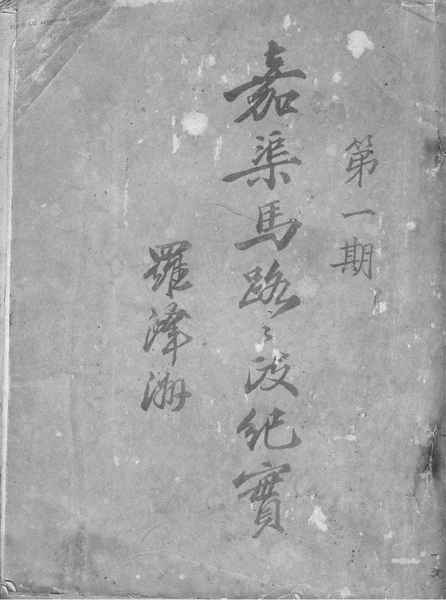 第一期
嘉渠馬路之役紀實
羅澤洲